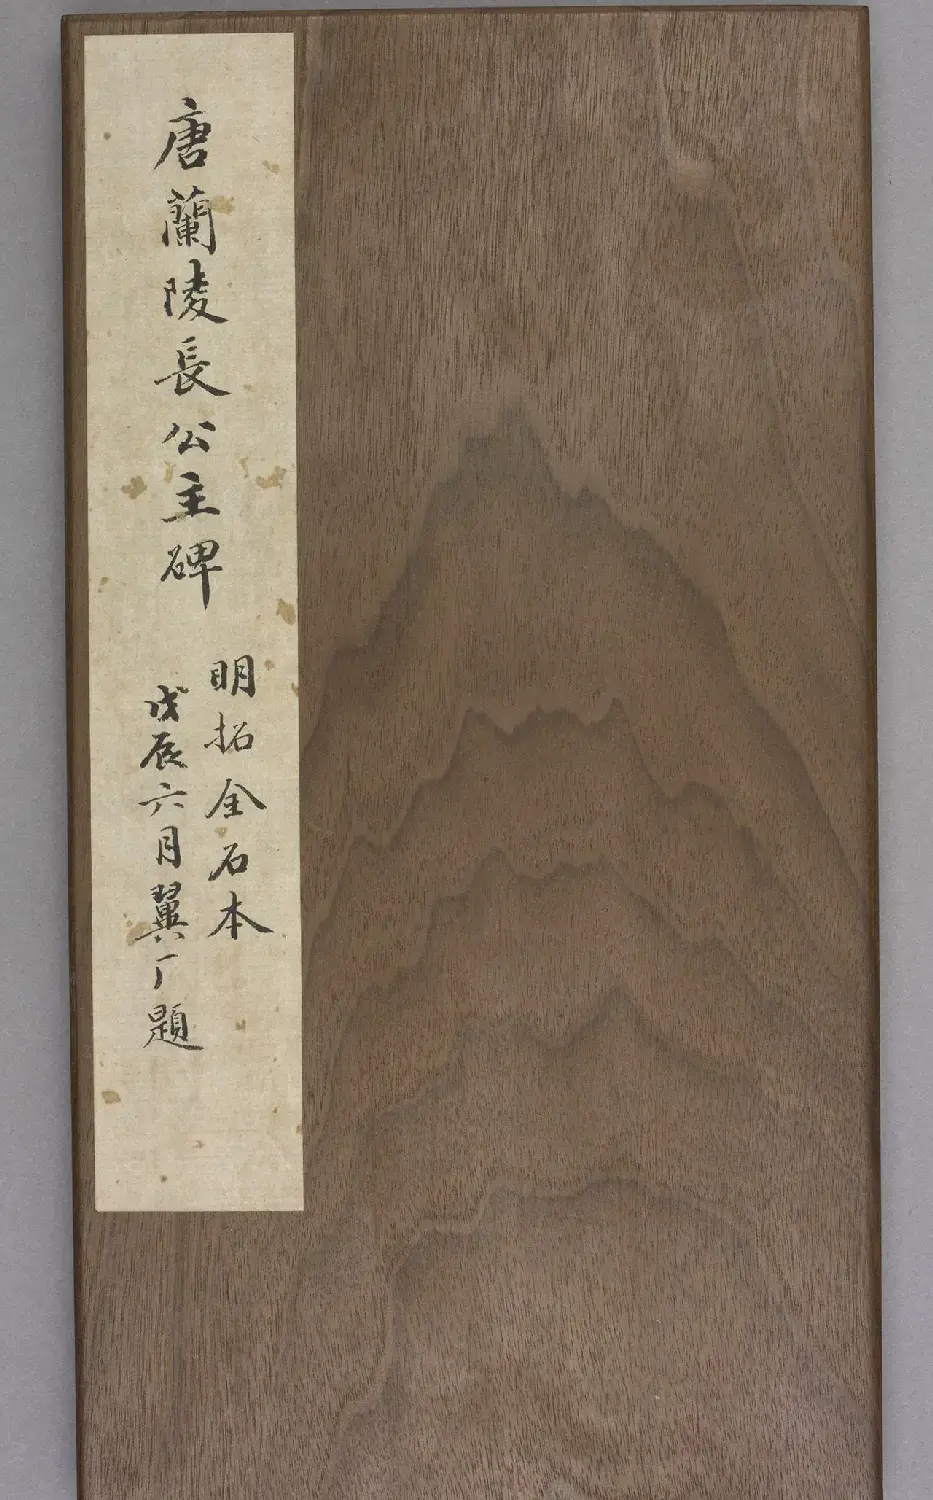 唐蘭陵長公主碑
明拓全石本
戊辰六月翼厂題